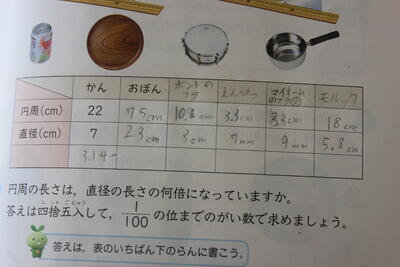 かん おぼん ボンドのフタ えんぴつ マイネームのフタ モルック
円周(cm) 22 75cm 10.3cm 3.3cm 3.3cm 18cm
直径(cm) 7 23cm 3cm 7mm 9mm 5.8cm
3.14…
円周の長さは，直径の長さの何倍になっていますか。
答えは四捨五入して，1/100の位までのがい数で求めましょう。
答えは，表のいちばん下のらんに書こう。